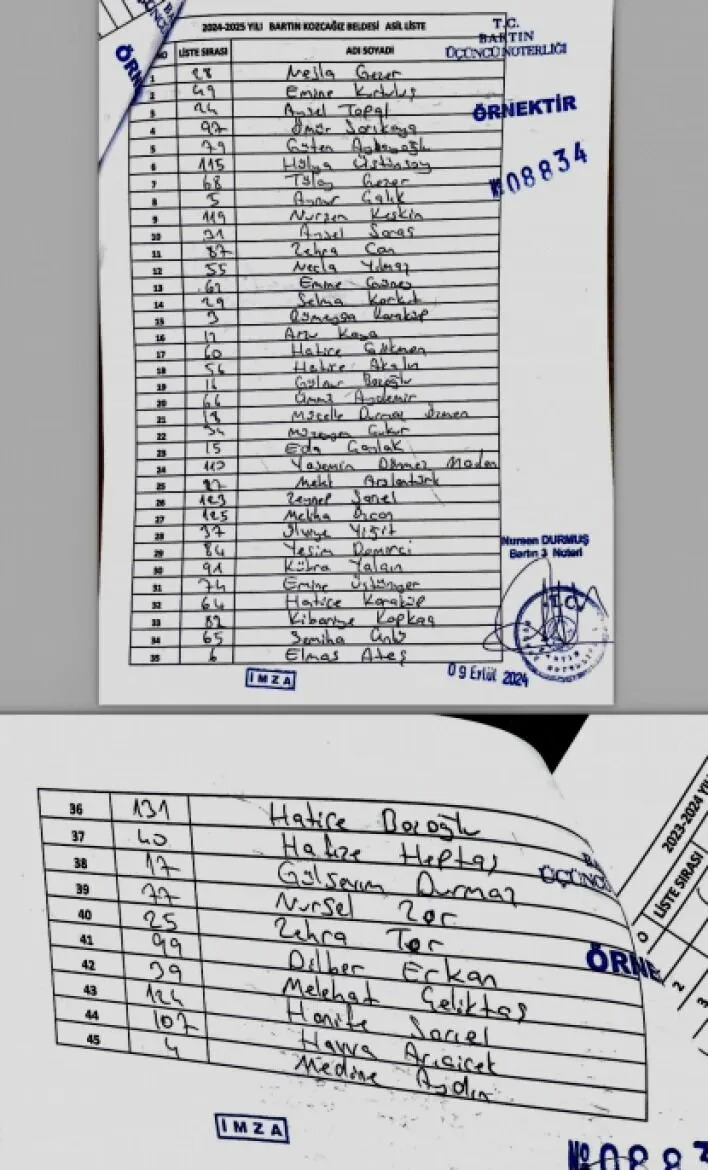 2024-2025 YILI BARTIN KOZCAĞIZ BELDESİ ASİL LİSTE
T.C.
BARTIN
ÜÇÜNCÜ NOTERLİĞİ
NO LİSTE SIRASI ADI SOYADI
ÖRNEKTİR
№ 08834
1 28 Nejla Gezer
2 49 Emine Kurtuluş
3 24 Aysel Topal
4 97 Ömür Sarıkaya
5 79 Gülten
6 115 Hülya Üstünsoy
7 68 Tülay Gezer
8 5 Aynur Çalık
9 119 Nursen Keskin
10 31 Aysel Saraş
11 87 Zehra Can
12 55 Necla Yılmaz
13 61 Emine Güneş
14 29 Selma Korkut
15 3 Rümeysa Karaküp
16 12 Arzu Kaya
17 60 Hatice Gökmen
18 56 Hatice Akalın
19 16 Gülnur Bozoğlu
20 66 Ümmü Aydemir
21 18 Mücelle Durmaz Özmen
22 34 Müzeyyen Çukur
23 15 Eda Çaylak
24 110 Yasemin Dönmez Maden
25 Arslantürk
26 123 Zeynep Sarıel
27 125 Meliha Özcan
28 37 Yiğit
29 84 Yeşim Demirci
30 91 Kübra Yalçın
31 74 Emine Üstünyer
32 64 Hatice Karaküp
33 82 Kibariye Kopkaç
34 65 Semiha Ünlü
35 6 Elmas Ateş
Nursen DURMUŞ
Bartın 3. Noteri
T.C.
İMZA
09 Eylül 2024
36 131 Hatice Bozoğlu
37 40 Hafize Heptaş
38 17 Gülsevim Durmaz
39 77 Nursel Zor
40 25 Zehra Tor
41 99 Dilber Erkan
42 39 Melehat Çeliktaş
43 124 Hanife Sarıel
44 107 Havva Arıçiçek
45 4 Medine Aydın
BA
ÜÇÜNCÜ
ÖRNE
2023-2024 YIL
LİSTE SIRASI
2
3
İMZA
№ 0883